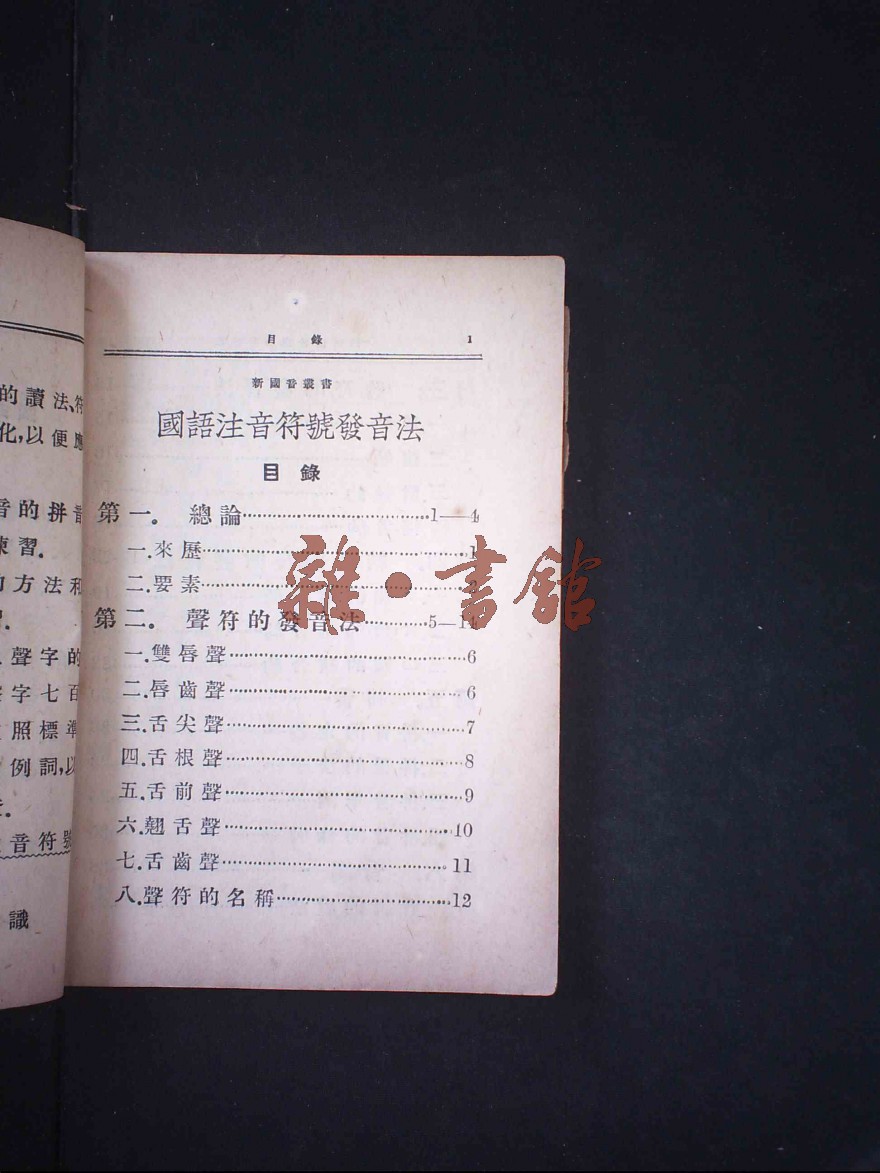 的讀法、符
化,以便應
音的拼音
練習.
的方法和
習.
聲字的
字七百
照標準
例詞,以
音符號
識
目錄 1
新國音叢書
國語注音符號發音法
目錄
第一。 總論………1—4
一.來歷………1
二.要素………
第二。 聲符的發音法………5—14
一.雙唇聲………6
二.唇齒聲………6
三.舌尖聲………7
四.舌根聲………8
五.舌前聲………9
六.翹舌聲………10
七.舌齒聲………11
八.聲符的名稱………12
雜·書館